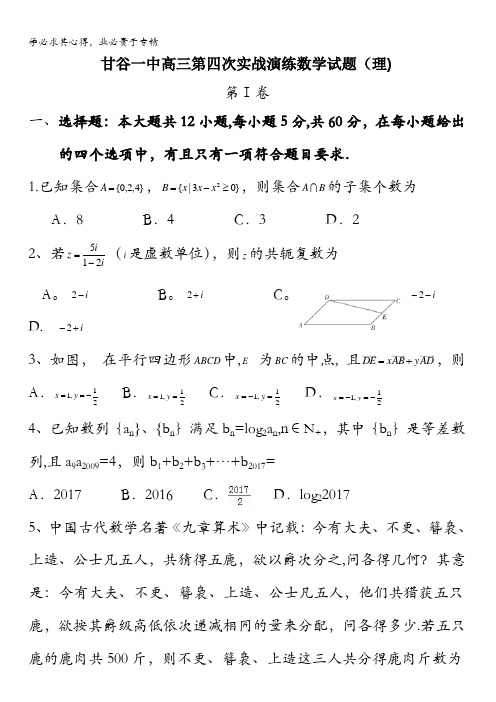 学必求其心得，业必贵于专精
甘谷一中高三第四次实战演练数学试题（理)
第Ⅰ卷
一、选择题：本大题共12小题,每小题5分,共60分，在每小题给出
的四个选项中，有且只有一项符合题目要求．
1.已知集合A={0,2,4}，B={x|3x-x²≥0}，则集合A∩B的子集个数为
A．8 B．4 C．3 D．2
2、若z=5i/(1-2i)（i是虚数单位)，则z的共轭复数为
A。 2-i B。 2+i C。 -2-i
D. -2+i
D C E A B
3、如图， 在平行四边形ABCD中,E 为BC的中点, 且DE=xAB+yAD，则
A．x=1, y=-1/2 B．x=1, y=1/2 C．x=-1, y=1/2 D．x=-1, y=-1/2
4、已知数列｛aₙ}、{bₙ｝满足bₙ=log₂aₙ,n∈N₊，其中｛bₙ｝是等差数
列,且a₉a₂₀₀₉=4，则b₁+b₂+b₃+…+b₂₀₁₇=
A．2017 B．2016 C．2017/2 D．log₂2017
5、中国古代数学名著《九章算术》中记载：今有大夫、不更、簪袅、
上造、公士凡五人，共猜得五鹿，欲以爵次分之,问各得几何？其意
是：今有大夫、不更、簪袅、上造、公士凡五人，他们共猎获五只
鹿，欲按其爵级高低依次递减相同的量来分配，问各得多少.若五只
鹿的鹿肉共500斤，则不更、簪袅、上造这三人共分得鹿肉斤数为